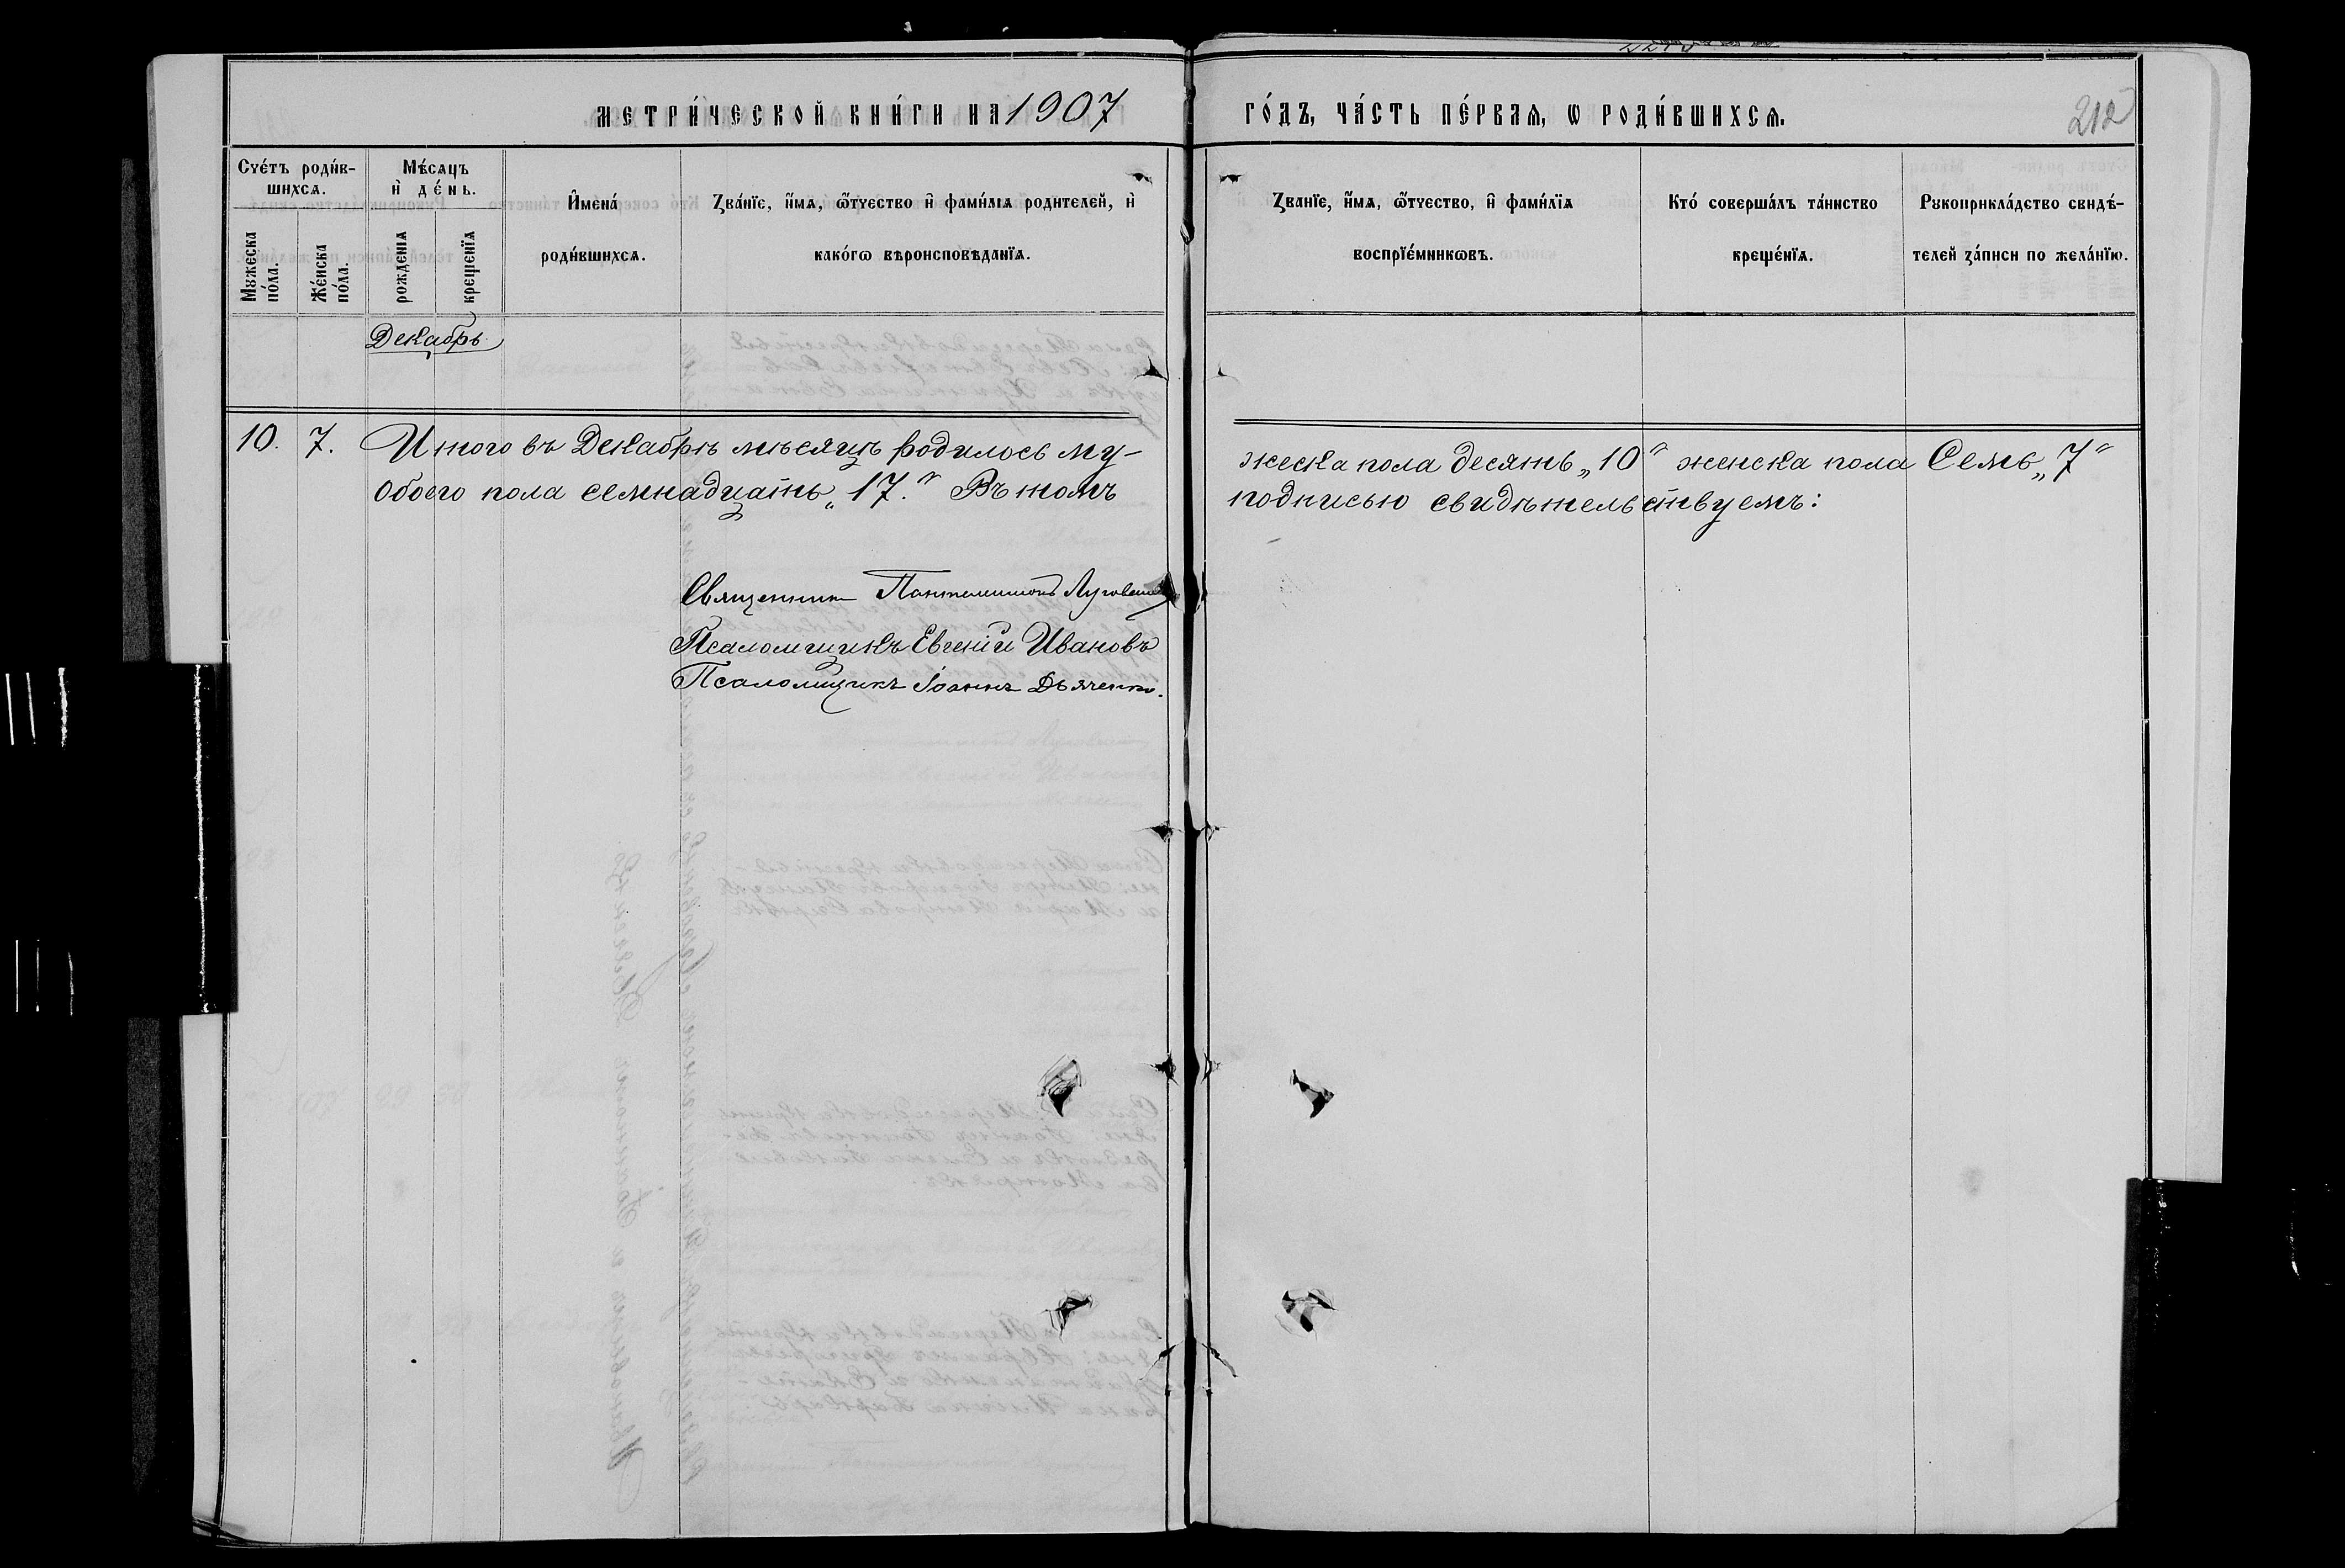 МЕТРИ́ЧЕСКОЙ КНИ́ГИ НА 1907
ГО́ДЪ, ЧА́СТЬ ПЕ́РВАЯ, Ѡ РОДИ́ВШИХСЯ.
212
Счéтъ роди́в-
шихсѧ.
Мꙋжеска
по́ла.
Же́нска
по́ла.
Мѣ́сяцъ
и҆ де́нь.
рожденіѧ
крещенїѧ
И҆мена́
роди́вшихсѧ.
Зва́нїе, и҆́мѧ, ѻ҆́тчество и҆ фами́лїѧ родителей, и҆
како́гѡ вѣроисповѣданїѧ.
Званїе, и҆́мѧ, ѻ҆́тчество, и҆ фами́лїѧ
воспрїе́мникѡвъ.
Кто́ соверша́лъ та́инство
креще́нїѧ.
Рꙋкоприкла́дство свидѣ́-
телей за́писи по жела́нїю.
Декабрь
10. 7. Итого въ Декабрѣ мѣсяцѣ родилось му-
жеска пола десять „10" женска пола Семь „7"
Обоего пола семнадцать „17." Въ томъ
подписью свидѣтельствуемъ:
Священник Пантелеимонъ
Псаломщикъ Евгеній Ивановъ
Псаломщикъ Іоаннъ Дьяченко.